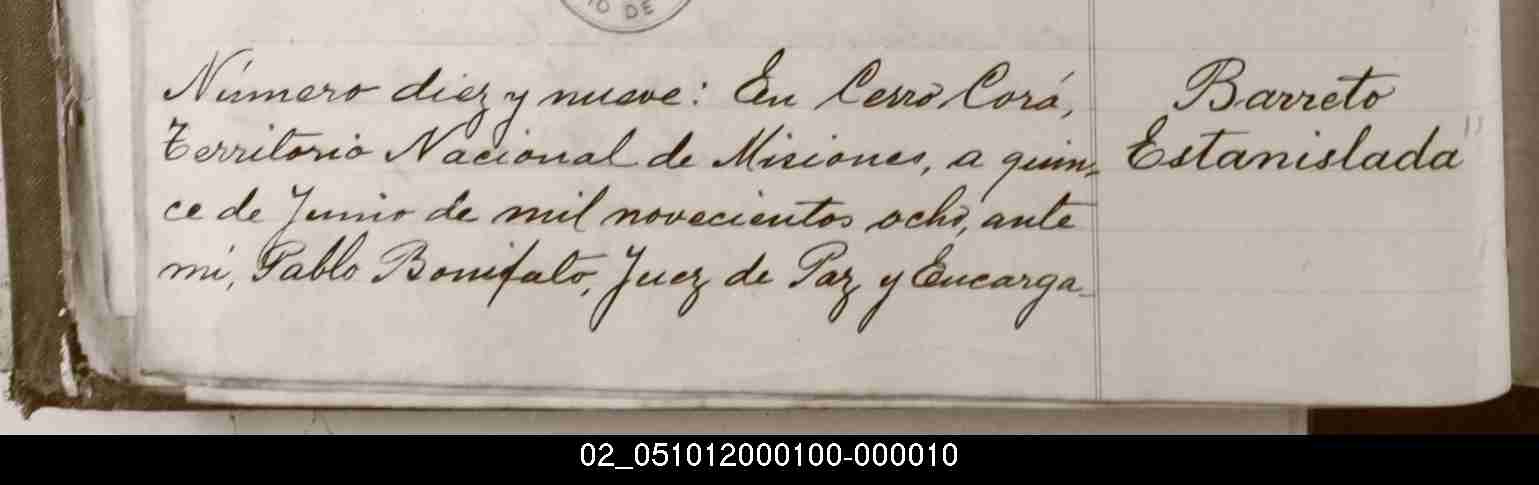 IO DE
Número diez y nueve: En Cerro Corá,
Territorio Nacional de Misiones, a quin-
ce de Junio de mil novecientos ocho, ante
mí, Pablo Bonifato, Juez de Paz y Encarga-
Barreto
Estanislada
02_051012000100-000010